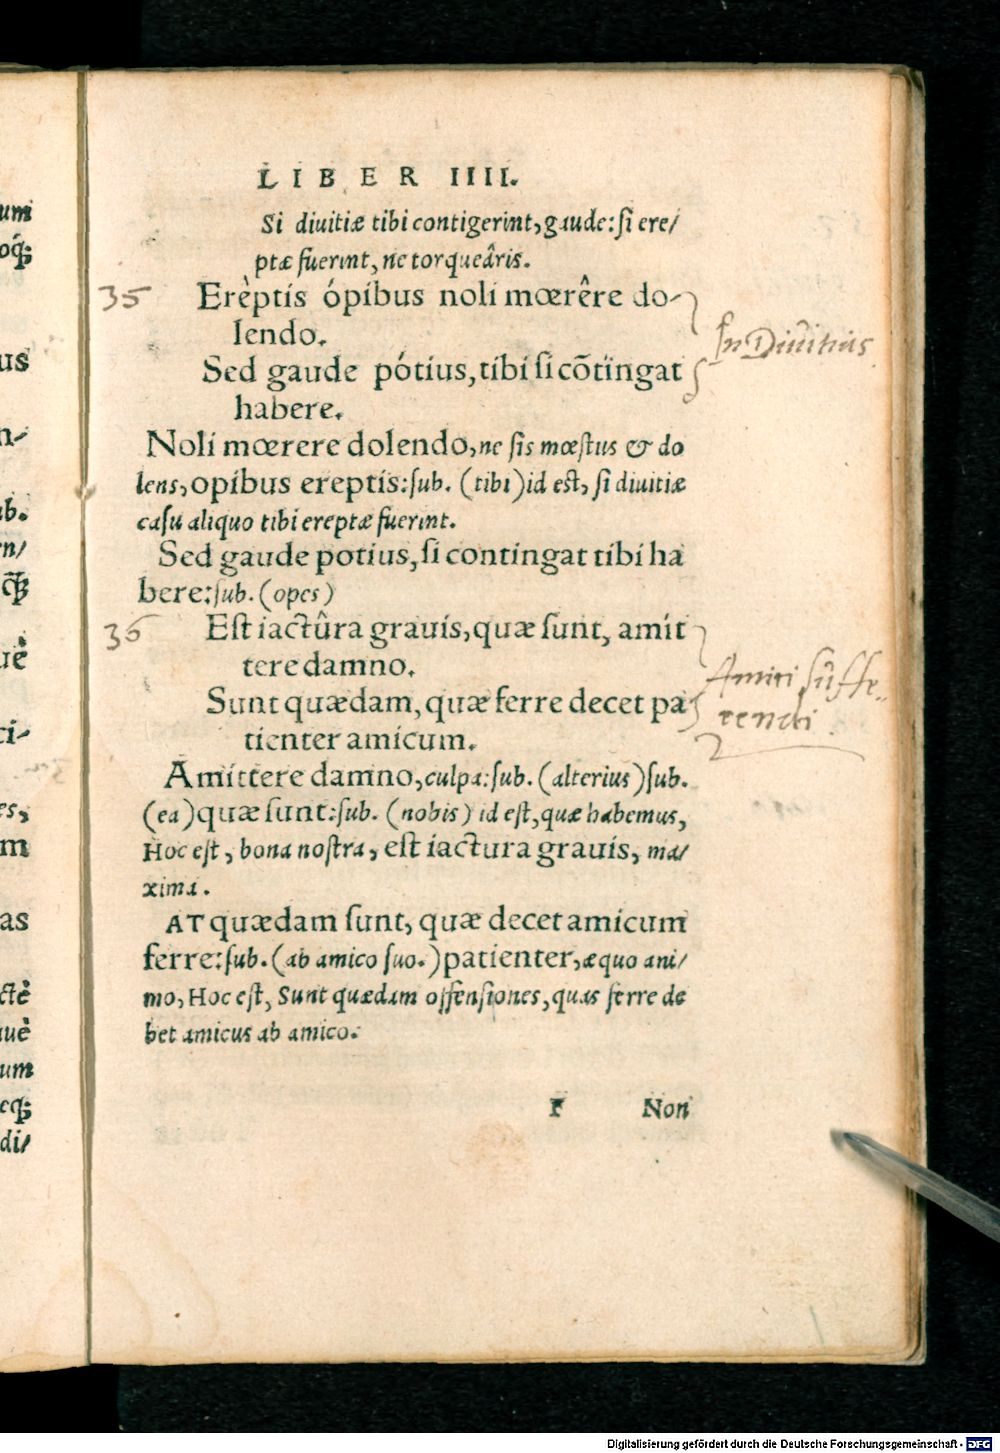 LIBER IIII.
Si diuitiæ tibi contigerint, gaude: si ere/
ptæ fuerint, ne torqueâris.
35 Erèptis ópibus noli mœrêre do-
lendo.
In Diuitiis
Sed gaude pótius, tibi si cõtingat
habere.
Noli mœrere dolendo, ne sis mœstus & do
lens, opibus ereptis: sub. (tibi) id est, si diuitiæ
casu aliquo tibi ereptæ fuerint.
Sed gaude potius, si contingat tibi ha
bere: sub. (opes)
36 Est iactûra grauis, quæ sunt, amit
tere damno.
Amici suffe-
rendi.
Sunt quædam, quæ ferre decet pa
tienter amicum.
Amittere damno, culpa: sub. (alterius) sub.
(ea) quæ sunt: sub. (nobis) id est, quæ habemus,
Hoc est, bona nostra, est iactura grauis, ma/
xima.
AT quædam sunt, quæ decet amicum
ferre: sub. (ab amico suo.) patienter, æquo ani/
mo, Hoc est, Sunt quædam offensiones, quas ferre de
bet amicus ab amico.
F Non
um
us
n-
ub.
en/
uè
ci-
es,
m
as
ctè
uuè
um
di/
Digitalisierung gefördert durch die Deutsche Forschungsgemeinschaft - DFG